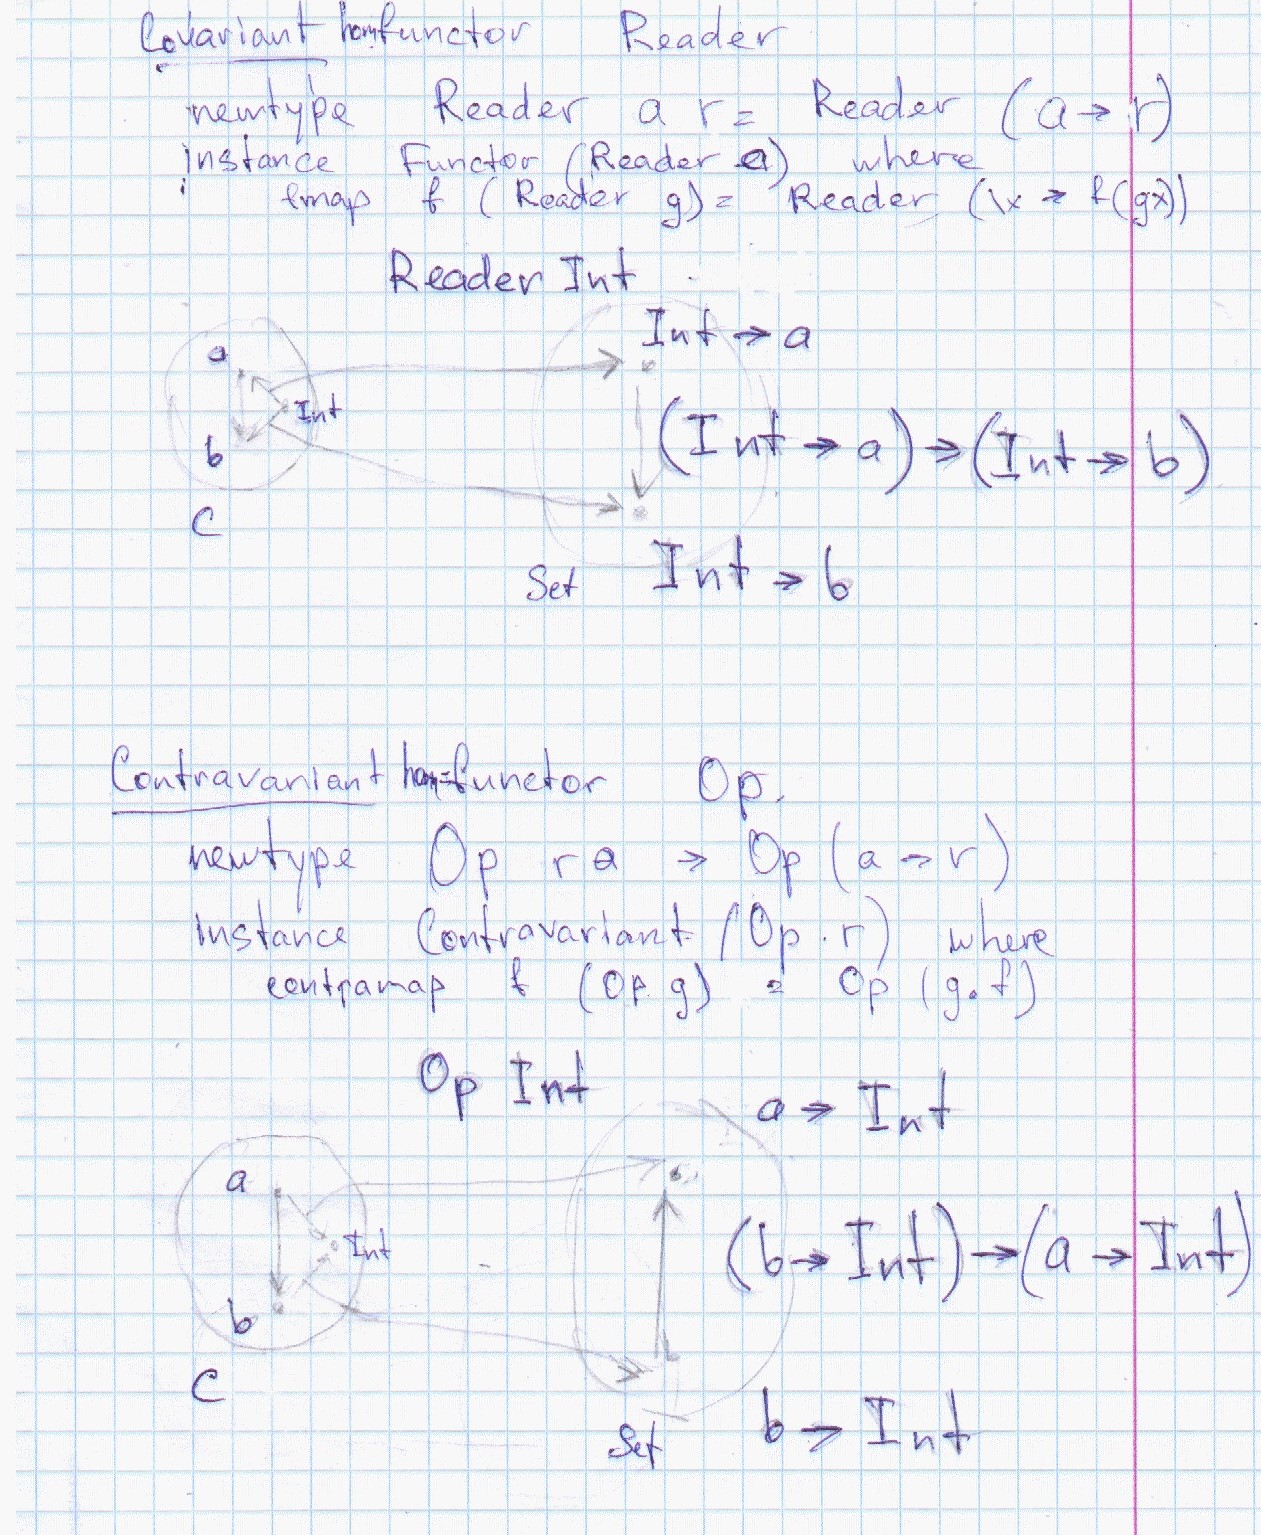 Covariant hom-functor Reader
newtype Reader a r = Reader (a → r)
instance Functor (Reader a) where
fmap f (Reader g) = Reader (\x → f(gx))
Reader Int
Int → a
a
Int
(Int → a) → (Int → b)
b
C
Set
Int → b
Contravariant hom-functor Op.
newtype Op r a → Op (a → r)
instance Contravariant (Op r) where
contramap f (Op g) = Op (g.f)
Op Int
a → Int
a
Int
(b → Int) → (a → Int)
b
C
b → Int
Set